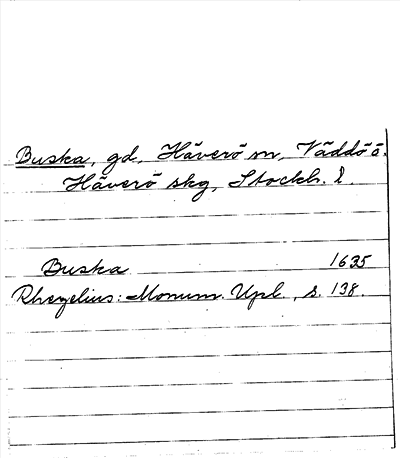 Buska, gd, Häverö sn, Väddö ö.
Häverö skg, Stockh. l.
Buska 1635
Rhezelius: Monum. Upl., s. 138.